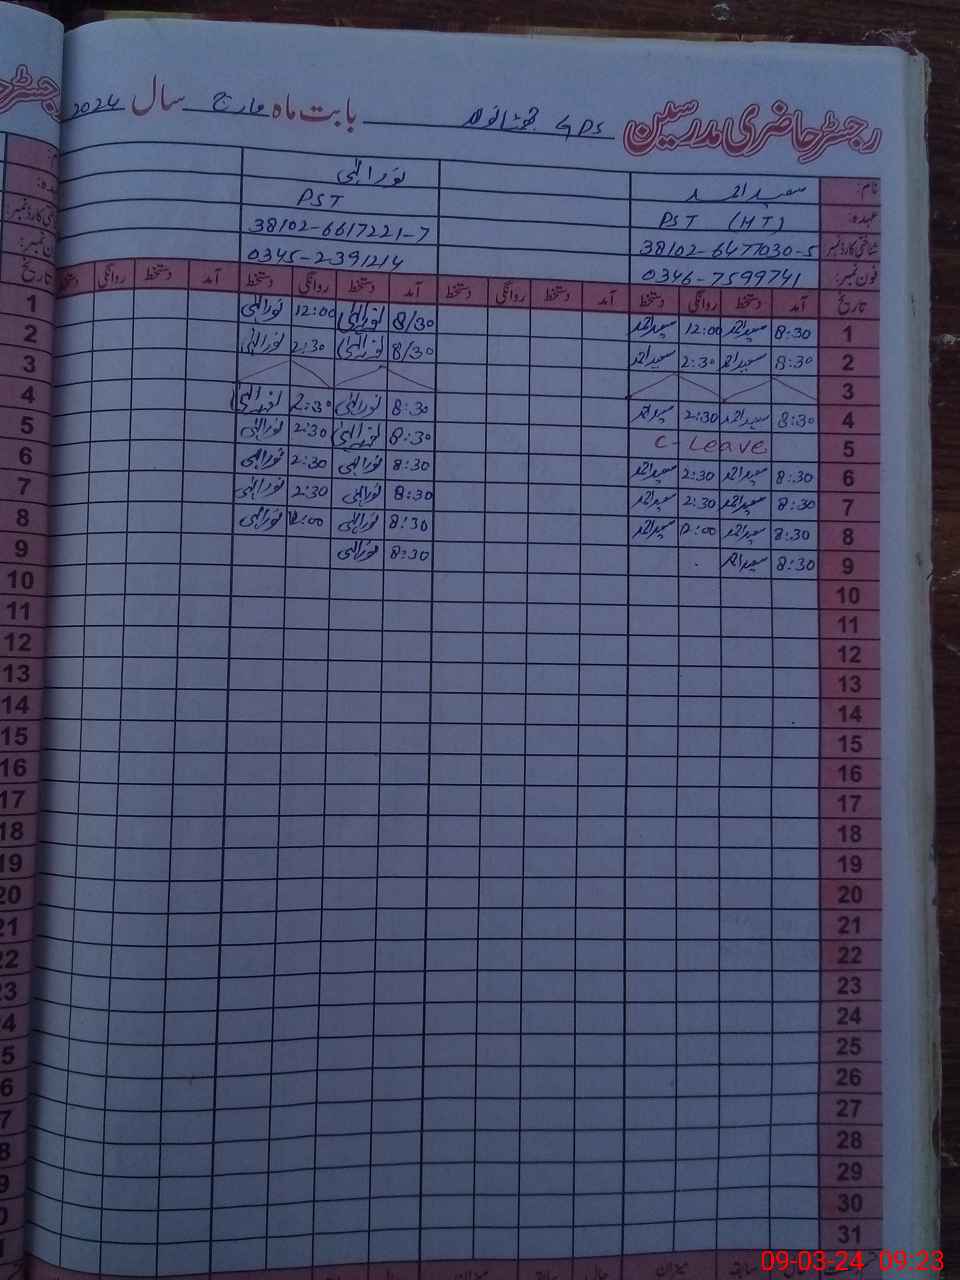 رجسٹر حاضری مدرسین GPS بابت ماہ مارچ سال 2024
نام: سعید احمد نور الٰہی
عہدہ: PST (HT) PST
شناختی کارڈ نمبر: 38102-6477030-5 38102-6617221-7
فون نمبر: 0346-7599741 0345-2391214
تاریخ آمد دستخط روانگی دستخط آمد دستخط روانگی دستخط آمد دستخط روانگی دستخط آمد دستخط روانگی دستخط تاریخ
1 8:30 سعید احمد 12:00 سعید احمد 8/30 نور الٰہی 12:00 نور الٰہی 1
2 8:30 سعید احمد 2:30 سعید احمد 8/30 نور الٰہی 2:30 نور الٰہی 2
3 3
4 8:30 سعید احمد 2:30 سعید احمد 8:30 نور الٰہی 2:30 نور الٰہی 4
5 C-Leave 8:30 نور الٰہی 2:30 نور الٰہی 5
6 8:30 سعید احمد 2:30 سعید احمد 8:30 نور الٰہی 2:30 نور الٰہی 6
7 8:30 سعید احمد 2:30 سعید احمد 8:30 نور الٰہی 2:30 نور الٰہی 7
8 8:30 سعید احمد 12:00 سعید احمد 8:30 نور الٰہی 12:00 نور الٰہی 8
9 8:30 سعید احمد 8:30 نور الٰہی 9
10 10
11 11
12 12
13 13
14 14
15 15
16 16
17 17
18 18
19 19
20 20
21 21
22 22
23 23
24 24
25 25
26 26
27 27
28 28
29 29
30 30
31 31
میزان میزان
09-03-24 09:23